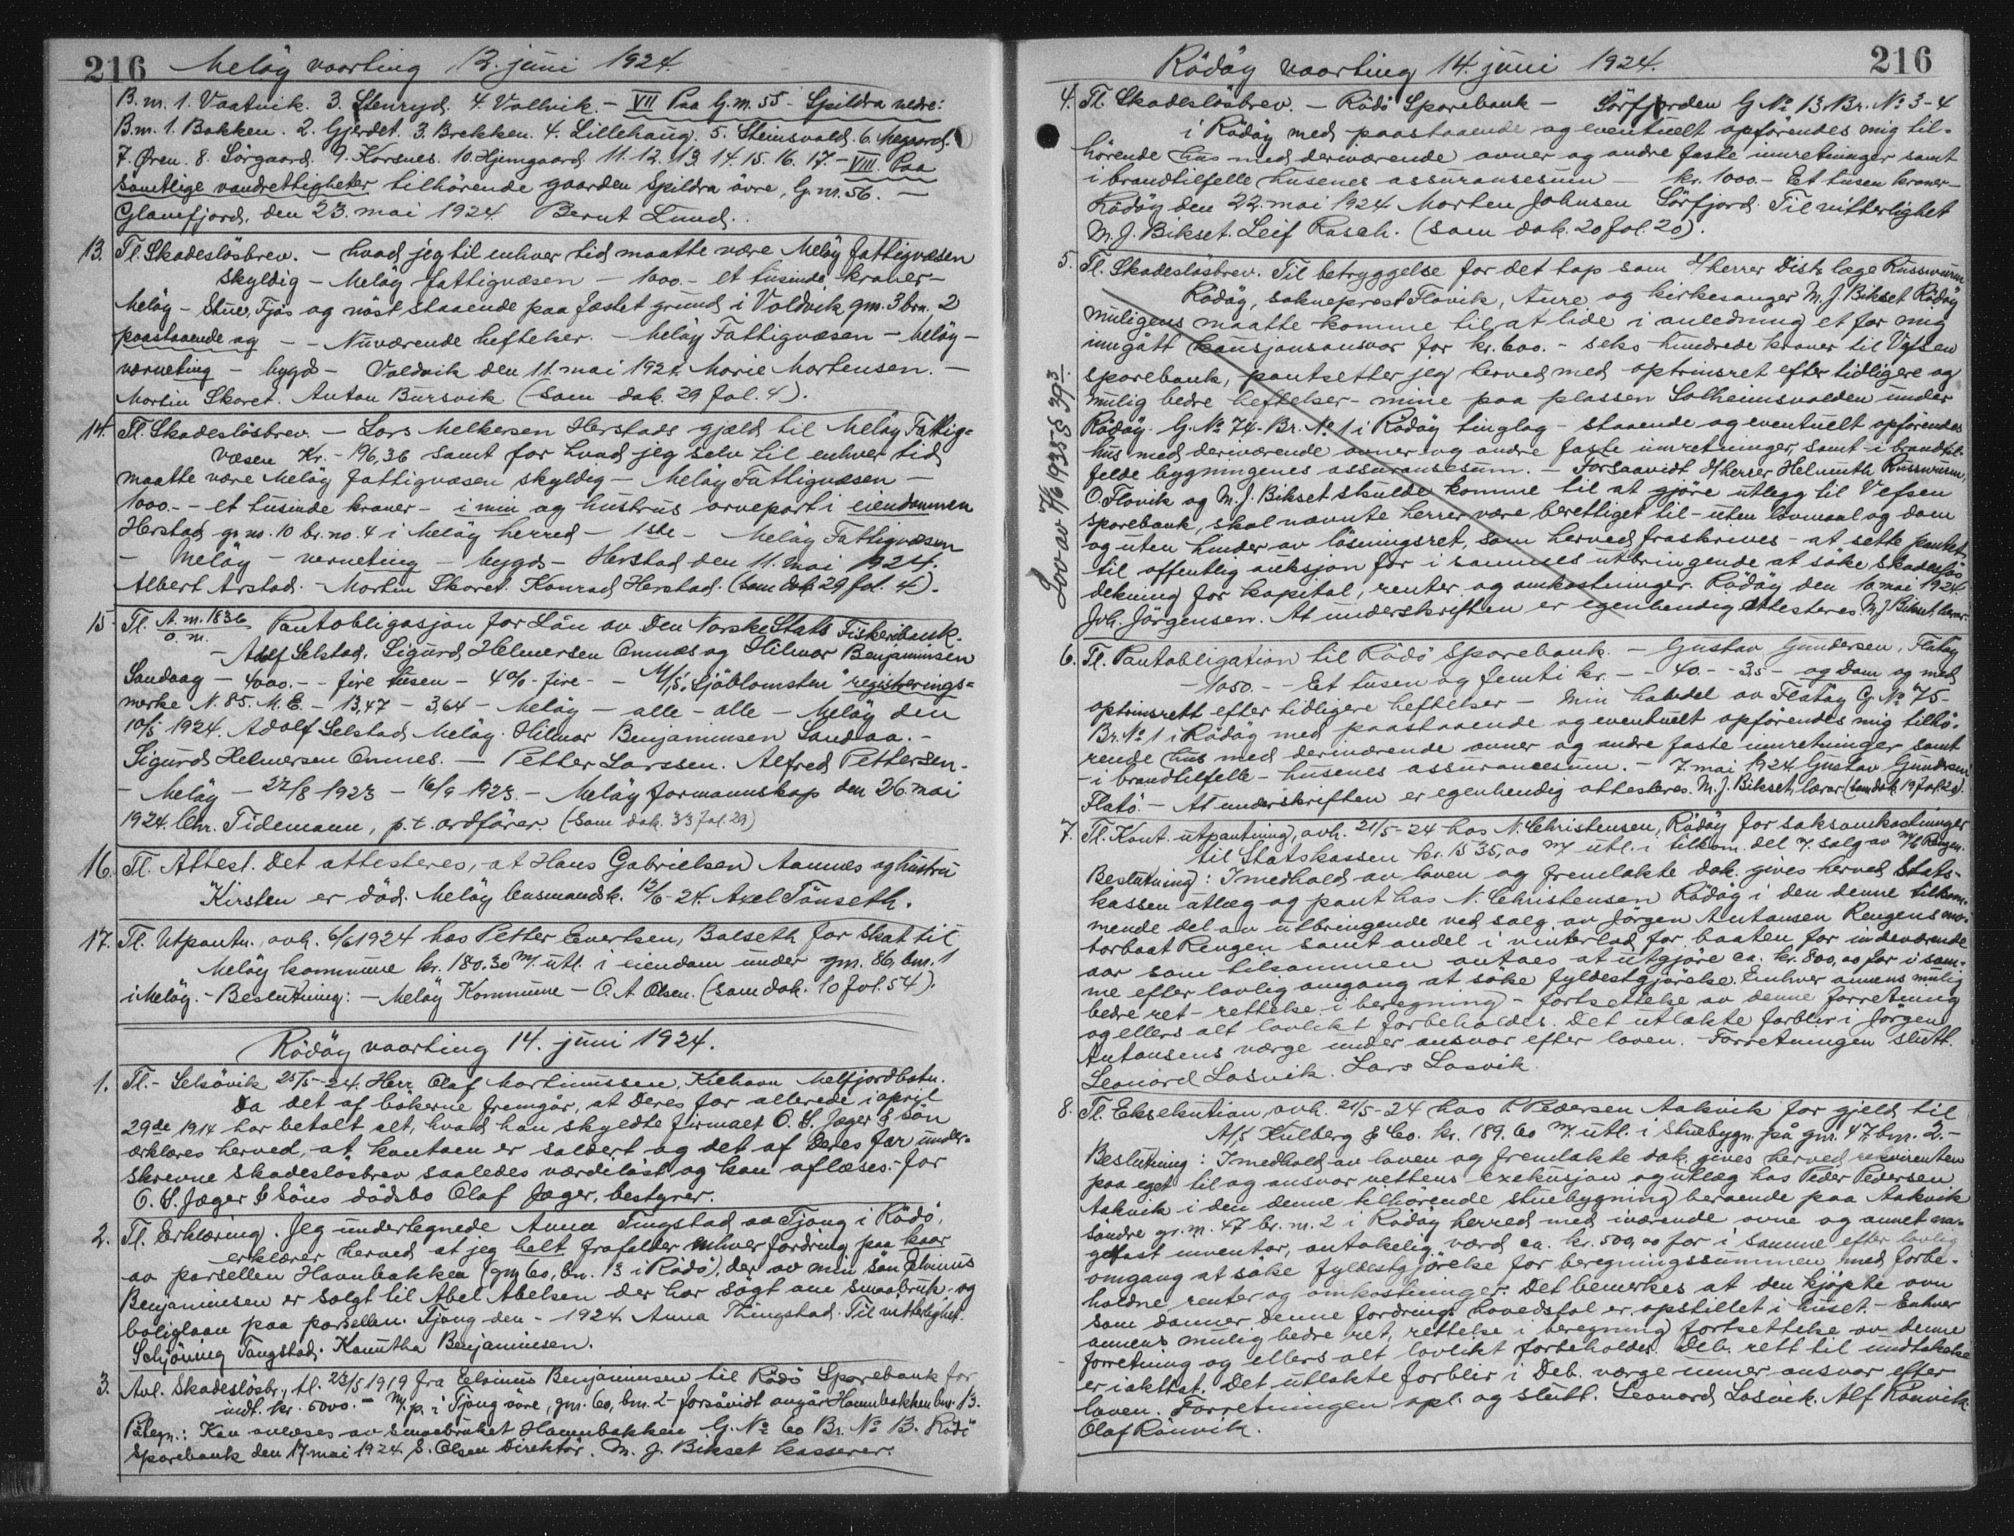 216 Meløy vaarting 12. juni 1924.
B.nr. 1. Vaatvik. 3. Stenryd. 4. Vallvik. – VII Paa G.nr. 55 – Spildra nedre:
B.nr. 1. Bakken. 2. Gjerdet. 3. Brekken. 4. Lillehaug. 5. Steinsvold. 6. Negaard.
7. Øren. 8. Sørgaard. 9. Korsnes. 10. Hjemgaard 11. 12. 13. 14. 15. 16. 17. – VIII. Paa
samtlige vandrettigheter tilhørende gaarden Spildra øvre, G.nr. 56. –
Glomfjord, den 23. mai 1924 Bernt Lund.
13. Tl. Skadesløsbrev. – hvad jeg til enhver tid maatte være Meløy fattigvæsen
skyldig – Meløy fattigvæsen – 1000.– et tusinde kroner –
Meløy – Stue, Fjøs og nøst staaende paa festet grund i Valdvik gnr. 3 brn. 2
paastaaende og – – Nuværende heftelser. – Meløy Fattigvæsen – Meløy –
værneting – bygd – Valdvik den 11. mai 1924 Marie Mortensen. –
Martin Skaret. Anton Bursvik. (som dok. 29 fol. 4).
14. Tl. Skadesløsbrev. – Lars Melkersen Herstads gjæld til Meløy Fattig-
væsen Kr. – 196,36 samt for hvad jeg selv til enhver tid
maatte være Meløy fattigvæsen skyldig – Meløy Fattigvæsen –
1000.– – et tusinde kroner – i min og hustrus arvepart i eiendommen
Herstad gr. no. 10 br. no. 4 i Meløy herred – 1ste – Meløy Fattigvæsen
– Meløy – verneting – bygds – Herstad den 11. mai 1924.
Albert Arstad. – Martin Skaret. Konrad Herstad. (som dok 29 fol. 4).
15. Tl. A.m. 1836 o.m. Pantobligasjon for Lån av Den Norske Stats Fiskeribank.
– Adolf Selstad, Sigurd Helmersen Onnes og Hilmar Benjaminsen
Sandaag – 4000.– – fire tusen – 4 % – fire – – M/S. "Sjøblomsten" registrerings-
merke N. 85. M.E. – 13,47 – 3,64 – Meløy – alle – alle – Meløy den
10/5 1924. Adolf Selstad Meløy. Hilmar Benjaminsen Sandaa. –
Sigurd Helmersen Onnes. – Petter Larssen. Alfred Pettersen.
– Meløy – 22/8 1923 – 16/9 1923. – Meløy formannskap den 26 mai
1924. Chr. Tidemann, p.t. ordfører. (Som dok. 33 fol. 29)
16. Tl. Attest. Det attesteres, at Hans Gabrielsen Aamnes og hustru
Kirsten er død. Meløy lensmandsk. 12/6 – 24. Axel Tønseth.
17. Tl. Utpantn., avh. 6/6 1924 hos Petter Evertsen, Balseth for skat til
Meløy kommune kr. 180.30 m/. utl. i eiendom under gnr. 86, bnr. 1
i Meløy. – Beslutning: – Meløy Kommune – O. A. Olsen. (som dok. 10 fol. 54).
Rødøy vaarting 14. juni 1924.
1. Tl. – Selsøvik 25/5 – 24. Herr Olaf Martinussen, Kilhavn Melfjordbotn.
Da det af bøkerne fremgår, at Deres far allerede i april
29de 1914 har betalt alt, hvad han skyldte firmaet O. S. Jæger & Søn
erklæres herved, at kontoen er saldert og det af Deres far under-
skrevne skadesløsbrev saaledes værdiløst og kan aflæses. – for
O. S. Jæger & Søns dødsbo Olaf Jæger, bestyrer.
2. Tl. Erklæring. Jeg undertegnede Anna Tingstad av Tjong i Rødø,
erklærer herved at jeg helt frafalder enhver fordring paa kaar
av parsellen Havnbakken (gnr 60, bn. 13 i Rødø), der av min søn Elvinus
Benjaminsen er solgt til Abel Abelsen der har søgt om smaabruk- og
boliglaan paa parsellen. Tjong den – 1924. Anna Thingstad. Til vitterlighet.
Schjøning Tangstad. Kanutha Benjaminsen.
3. Avl. Skadesløsbr., tl. 23/5 1919 fra Elvinus Benjaminsen til Rødø Sparebank for
indt. kr. 5000.– m/p. i Tjong øvre, gnr. 60, bnr. 2 forsåvidt angår Havnbakken bnr. 13.
Påtegn.: Kan avlæses av smaabruket Havnbakken G. No 60 Br. No 13. Rødø
Sparebank den 17 mai 1924 E. Olsen Direktør. M. J. Bikset kasserer.
Rødøy vaarting 14. juni 1924. 216
4. Tl. Skadesløsbrev. – Rødø Sparebank – Sørfjorden G No 13 Br. No 3-4
i Rødøy med paastaaende og eventuelt opførendes mig til-
hørende hus med derværende ovner og andre faste innretninger samt
i brandtilfelle husenes assuransesum – kr. 1000.– Et tusen kroner –
Rødøy den 22. mai 1924 Morten Johnsen Sørfjord. Til vitterlighet
M. J. Bikset. Leif Rasch. (som dok. 20 fol. 20).
5. Tl. Skadesløsbrev. Til betryggelse for det tap som Hherrer Distr. læge Russwurm
Rødøy, sokneprest Flovik, Aure og kirkesanger M. J. Bikset Rødøy
muligens maatte komme til at lide i anledning et for mig
inngått kausjonsansvar for kr. 600.– seks hundrede kroner til Vefsen
sparebank, pantsetter jeg herved med optrinsret efter tidligere og
mulig bedre heftelser – mine paa plassen Solheimsvolden under
Rødøy. G. No 74. Br. No 1 i Rødøy tinglag – staaende og eventuelt opførendes
hus med derværende ovner og andre faste innretninger, samt i brandtil-
felde bygningenes assuransesum. – Forsaavidt Hherrer Helmuth Russwurm,
O. Flovik og M. J. Bikset skulde komme til at gjøre utlegg til Vefsen
Sparebank, skal nævnte herrer være berettiget til – uten lovmaal og dom
og uten hinder av løsningsret, som herved fraskrives – at sette pantet
til offentlig auksjon for i sammes utbringende at søke skadesløs
dekning for kapital, renter og omkostninger. Rødøy den 10 mai 1924
Joh. Jørgensen. At underskriften er egenhendig attesteres. M. J. Bikset, lærer.
Lov av 7/6 1935 § 39³
6. Tl. Pantobligation til Rødø Sparebank. – Gustav Gundersen, Flatøy
– 1050.– – Et tusen og femti kr. – – 40. – – 3,5 – og dom og med
optrinsrett efter tidligere heftelser – Min halvdel av Flatøy G. No 75 –
Br. No 1 i Rødøy med paastaaende og eventuelt opførendes mig tilhø-
rende hus med derinværende ovner og andre faste innretninger samt
– i brandtilfelle – husenes assurancesum. – 7. mai 1924 Gustav Gundersen
Flatø. – At underskriften er egenhendig attesteres. M. J. Bikset, lærer (som dok. 19 fol. 20).
7. Tl. Kont. utpantning, avh. 21/5 – 24 hos N. Christensen, Rødøy for saksomkostninger
til Statskassen kr. 1535,00 m/ utl. i tilkom. del v. salg av M/b Rengen.
Beslutning: I medhold av loven og fremlakte dok. gives herved Stats-
kassen utlæg og pant hos N. Christensen Rødøy i den denne tilkom-
mende del av utbringende ved salg av Jørgen Antonsen Rengens mo-
torbaat Rengen samt andel i vinterlod for baaten for indeværende
aar som tilsammen antaes at utgjøre ca. kr. 800,00 for i sam-
me efter lovlig omgang at søke fyldestgjørelse. Enhver annens mulig
bedre ret – rettelse i beregning – fortsettelse av denne forretning
og ellers alt lovlikt forbeholdes. Det utlakte forblir i Jørgen
Antonsens værge under ansvar efter loven. Forretningen slutt.
Leonard Losvik. Lars Losvik.
8. Tl. Eksekution, avh. 21/5 – 24 hos P. Pedersen Aakvik for gjeld til
A/S Kulberg & Co. kr. 189.60 m/. utl. i stuebygn. på gnr. 47 bnr. 2. –
Beslutning: I medhold av loven og fremlakte dok. gives herved rekvirenten
paa eget til og ansvar rettens exekusjon og utlæg hos Peder Pedersen
Aakvik i den denne tilhørende stuebygning beroende paa Aakvik
søndre gr.nr. 47 br.nr. 2 i Rødøy herred med iværende ovne og annet na-
gelfast inventar, antakelig værd ca. kr. 500,00 for i samme efter lovlig
omgang at søke fyldestgjørelse for beregningssummen med forbe-
holdne renter og omkostninger. Det bemerkes at den kjøpte ovn
som danner denne fordrings hovedstol er opstillet i huset. – Enhver
annens mulig bedre ret, rettelse i beregning fortsettelse av denne
forretning og ellers alt lovlikt forbeholdes. Deb. rett til undtakelse
er iakttat. Det utlakte forblir i Deb. værge under ansvar efter
loven. Forretningen opl. og slutt. Leonard Losvik. Alf Rånvik.
Olaf Rånvik.